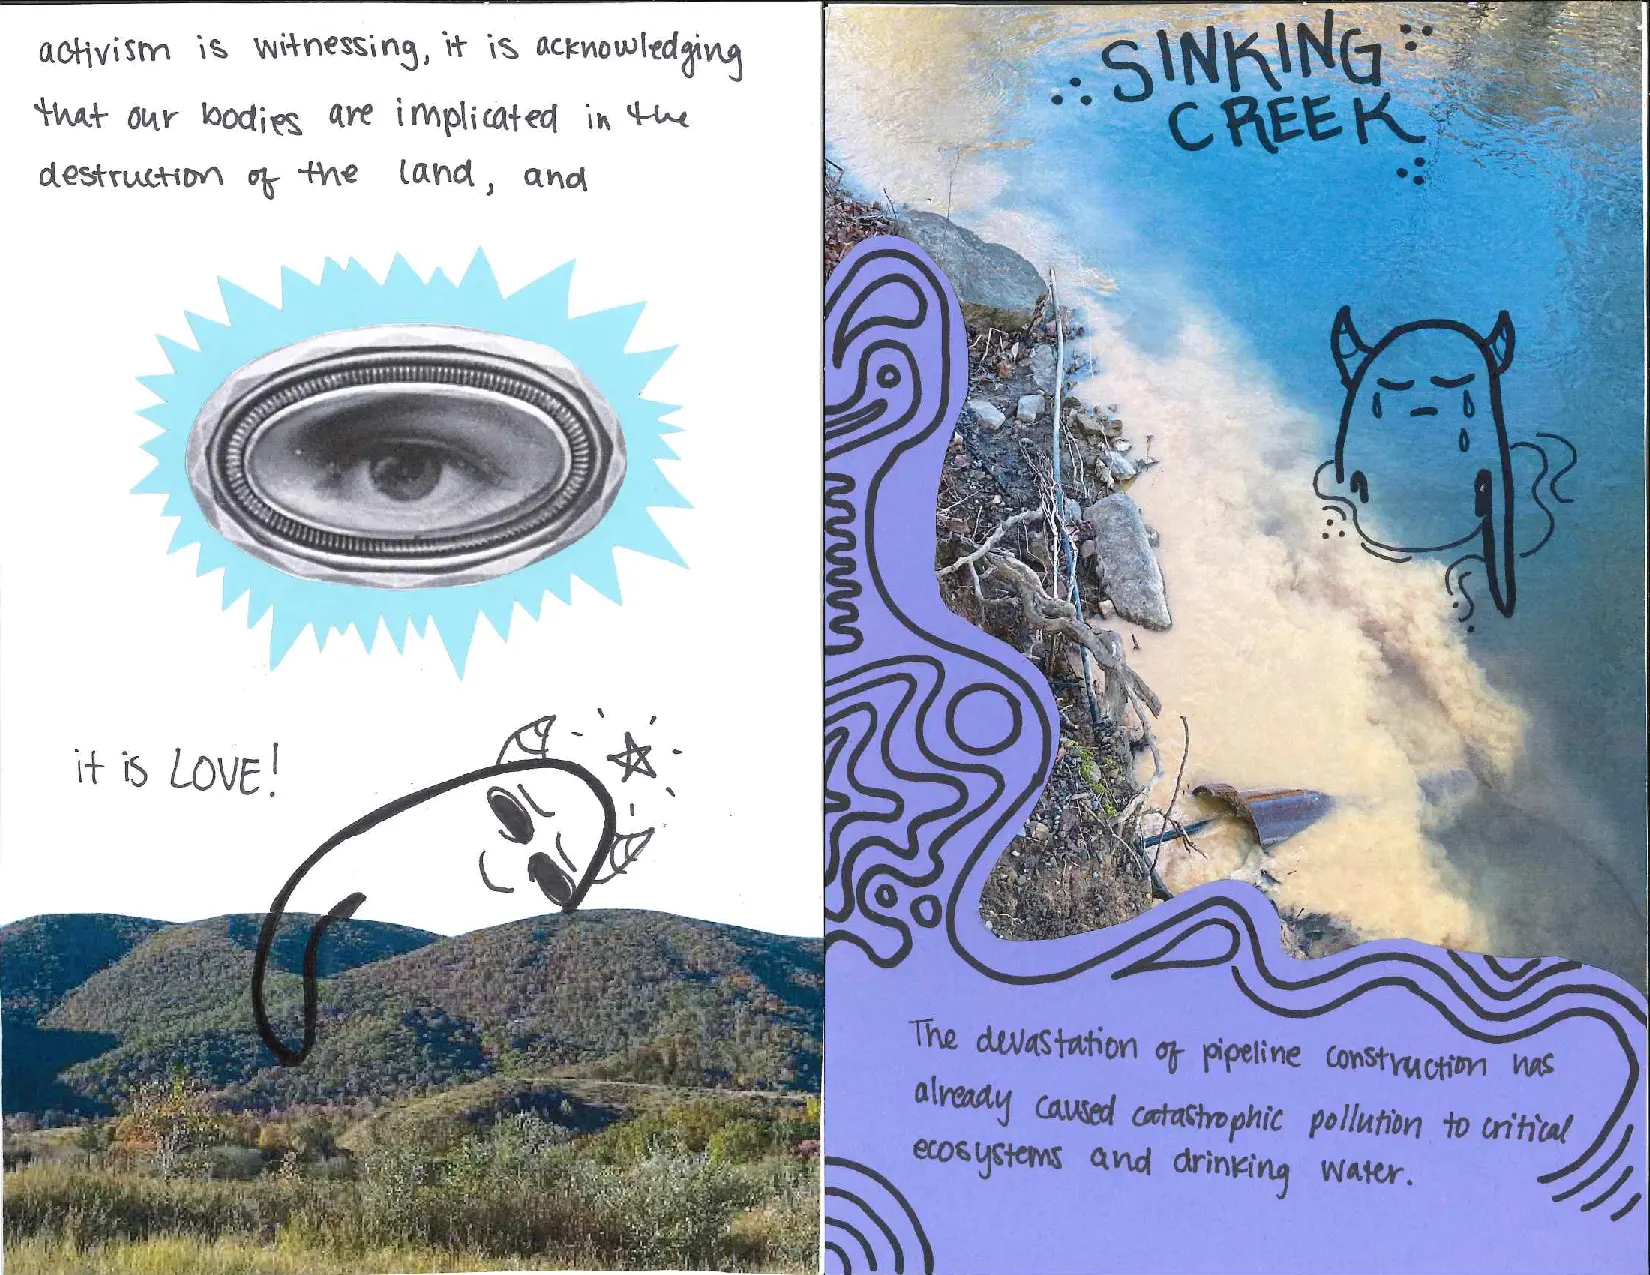 activism is witnessing, it is acknowledging
that our bodies are implicated in the
destruction of the land, and
it is LOVE!
SINKING
CREEK
The devastation of pipeline construction has
already caused catastrophic pollution to critical
ecosystems and drinking water.